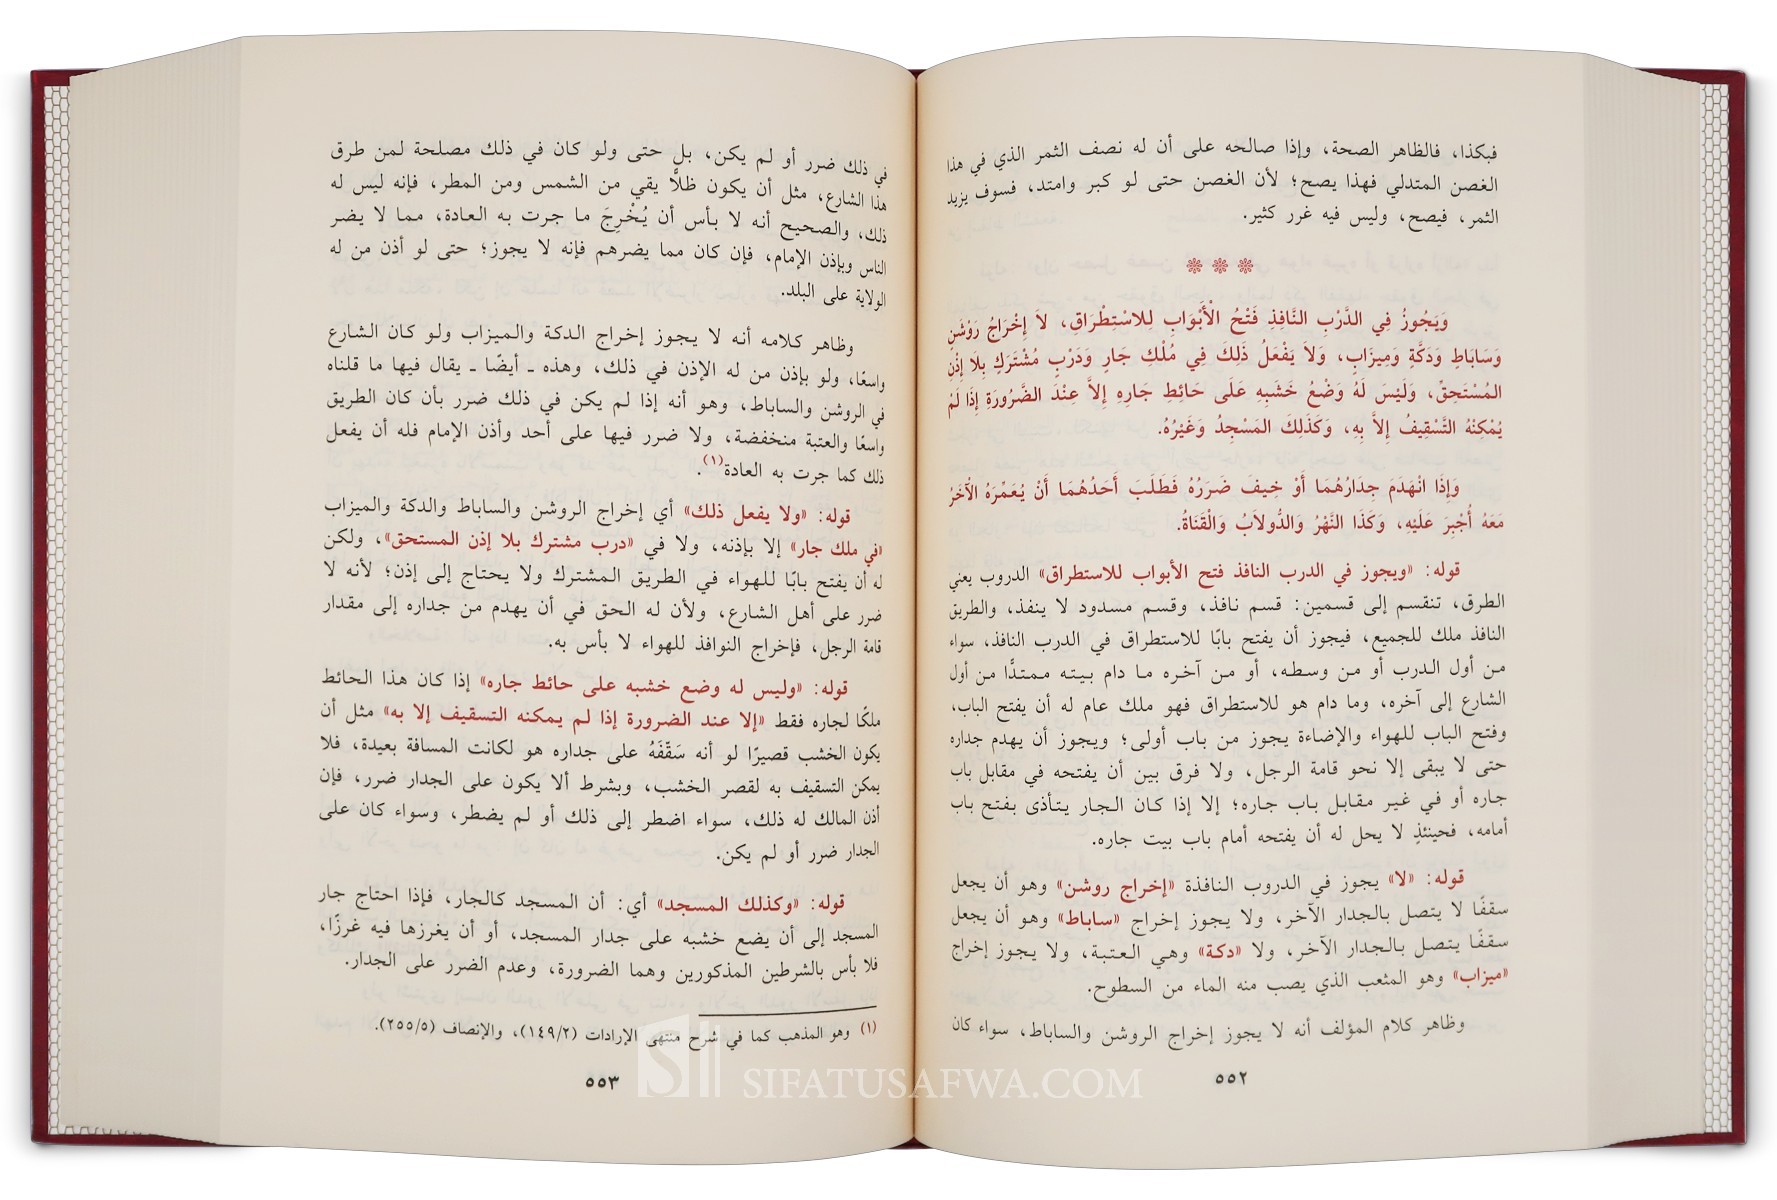 فبكذا، فالظاهر الصحة، وإذا صالحه على أن له نصف الثمر الذي في هذا
الغصن المتدلي فهذا يصح؛ لأن الغصن حتى لو كبر وامتد، فسوف يزيد
الثمر، فيصح، وليس فيه غرر كثير.
وَيَجُوزُ فِي الدَّرْبِ النَّافِذِ فَتْحُ الْأَبْوَابِ لِلاسْتِطْرَاقِ، لاَ إِخْرَاجُ رَوْشَنٍ
وَسَابَاطٍ وَدَكَّةٍ وَمِيزَابٍ، وَلاَ يَفْعَلُ ذَلِكَ فِي مُلْكِ جَارٍ وَدَرْبٍ مُشْتَرَكٍ بِلاَ إِذْنِ
المُسْتَحِقِّ، وَلَيْسَ لَهُ وَضْعُ خَشَبِهِ عَلَى حَائِطِ جَارِهِ إِلاَّ عِنْدَ الضَّرُورَةِ إِذَا لَمْ
يُمْكِنْهُ التَّسْقِيفُ إِلاَّ بِهِ، وَكَذَلِكَ المَسْجِدُ وَغَيْرُهُ.
وَإِذَا انْهَدَمَ جِدَارُهُمَا أَوْ خِيفَ ضَرَرُهُ فَطَلَبَ أَحَدُهُمَا أَنْ يُعَمِّرَهُ الْآخَرُ
مَعَهُ أُجْبِرَ عَلَيْهِ، وَكَذَا النَّهْرُ وَالدُّولاَبُ وَالْقَنَاةُ.
قوله: «ويجوز في الدرب النافذ فتح الأبواب للاستطراق» الدروب يعني
الطرق، تنقسم إلى قسمين: قسم نافذ، وقسم مسدود لا ينفذ، والطريق
النافذ ملك للجميع، فيجوز أن يفتح بابًا للاستطراق في الدرب النافذ، سواء
من أول الدرب أو من وسطه، أو من آخره ما دام بيته ممتدًّا من أول
الشارع إلى آخره، وما دام هو للاستطراق فهو ملك عام له أن يفتح الباب،
وفتح الباب للهواء والإضاءة يجوز من باب أولى؛ ويجوز أن يهدم جداره
حتى لا يبقى إلا نحو قامة الرجل، ولا فرق بين أن يفتحه في مقابل باب
جاره أو في غير مقابل باب جاره؛ إلا إذا كان الجار يتأذى بفتح باب
أمامه، فحينئذٍ لا يحل له أن يفتحه أمام باب بيت جاره.
قوله: «لا» يجوز في الدروب النافذة «إخراج روشن» وهو أن يجعل
سقفًا لا يتصل بالجدار الآخر، ولا يجوز إخراج «ساباط» وهو أن يجعل
سقفًا يتصل بالجدار الآخر، ولا «دكة» وهي العتبة، ولا يجوز إخراج
«ميزاب» وهو المثعب الذي يصب منه الماء من السطوح.
وظاهر كلام المؤلف أنه لا يجوز إخراج الروشن والساباط، سواء كان
٥٥٢
في ذلك ضرر أو لم يكن، بل حتى ولو كان في ذلك مصلحة لمن طرق
هذا الشارع، مثل أن يكون ظلًّا يقي من الشمس ومن المطر، فإنه ليس له
ذلك، والصحيح أنه لا بأس أن يُخْرِجَ ما جرت به العادة، مما لا يضر
الناس وبإذن الإمام، فإن كان مما يضرهم فإنه لا يجوز؛ حتى لو أذن من له
الولاية على البلد.
وظاهر كلامه أنه لا يجوز إخراج الدكة والميزاب ولو كان الشارع
واسعًا، ولو بإذن من له الإذن في ذلك، وهذه ـ أيضًا ـ يقال فيها ما قلناه
في الروشن والساباط، وهو أنه إذا لم يكن في ذلك ضرر بأن كان الطريق
واسعًا والعتبة منخفضة، ولا ضرر فيها على أحد وأذن الإمام فله أن يفعل
ذلك كما جرت به العادة(١).
قوله: «ولا يفعل ذلك» أي إخراج الروشن والساباط والدكة والميزاب
«في ملك جار» إلا بإذنه، ولا في «درب مشترك بلا إذن المستحق»، ولكن
له أن يفتح بابًا للهواء في الطريق المشترك ولا يحتاج إلى إذن؛ لأنه لا
ضرر على أهل الشارع، ولأن له الحق في أن يهدم من جداره إلى مقدار
قامة الرجل، فإخراج النوافذ للهواء لا بأس به.
قوله: «وليس له وضع خشبه على حائط جاره» إذا كان هذا الحائط
ملكًا لجاره فقط «إلا عند الضرورة إذا لم يمكنه التسقيف إلا به» مثل أن
يكون الخشب قصيرًا لو أنه سَقَّفَهُ على جداره هو لكانت المسافة بعيدة، فلا
يمكن التسقيف به لقصر الخشب، وبشرط ألا يكون على الجدار ضرر، فإن
أذن المالك له ذلك، سواء اضطر إلى ذلك أو لم يضطر، وسواء كان على
الجدار ضرر أو لم يكن.
قوله: «وكذلك المسجد» أي: أن المسجد كالجار، فإذا احتاج جار
المسجد إلى أن يضع خشبه على جدار المسجد، أو أن يغرزها فيه غرزًا،
فلا بأس بالشرطين المذكورين وهما الضرورة، وعدم الضرر على الجدار.
(١) وهو المذهب كما في شرح منتهى الإرادات (١٤٩/٢)، والإنصاف (٢٥٥/٥).
٥٥٣
SIFATUSAFWA.COM